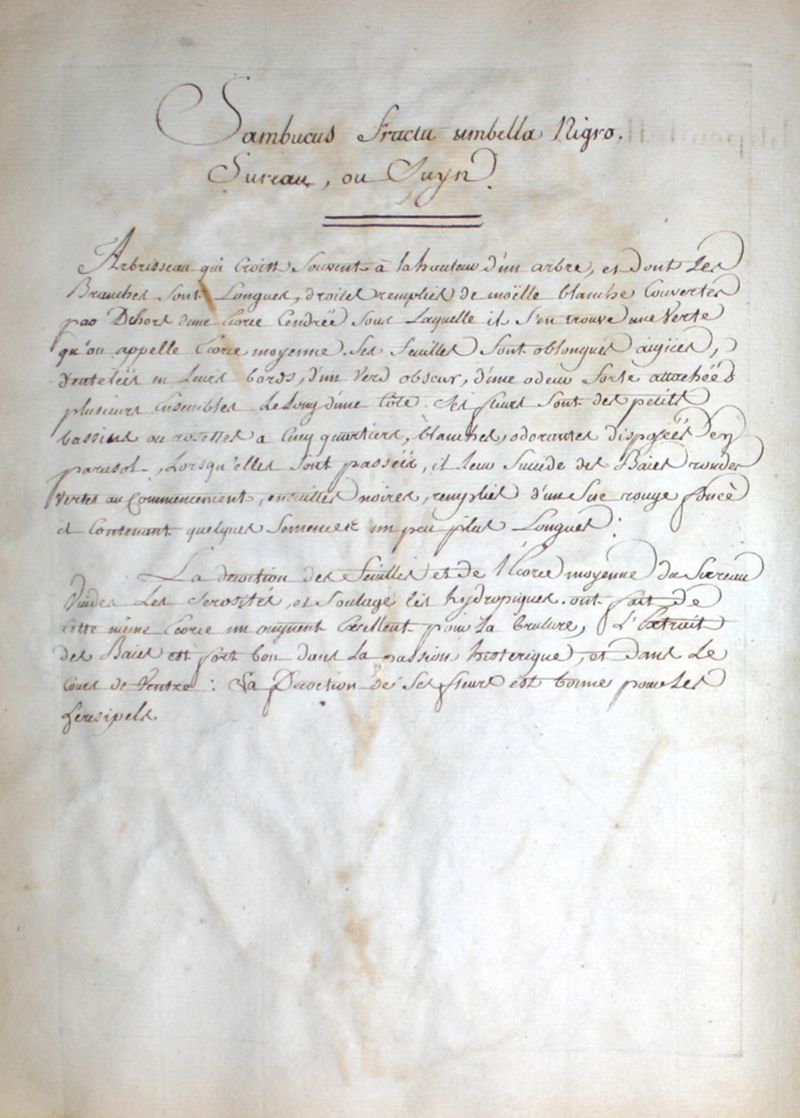 Sambucus Fructu umbella Nigro.
Sureau, ou Suyn.
Arbrisseau qui Croitt Souvent à la hauteur d'un arbre, et Dont Les
Branches Sont Longues, droites remplies de moëlle blanche Couvertes
par Dehors d'une Ecorce Cendrée Sous Laquelle il S'en trouve une Verte
qu'on appelle Ecorce moyenne. Ses feuilles Sont oblongues aigües,
dentelées en Leurs bords, d'un Verd obscur, d'une odeur forte attachées
plusieurs Ensembles Le Long d'une Côte. Ses fleurs Sont des petits
bassins ou rosettes a Cinq quartiers, blanches, odorantes disposées en
parasol. Lorsqu'elles Sont passées, il leur Succede des Baies rondes
Vertes au Commencement, ensuittes noires, remplies d'un Suc rouge foncé
et Contenant quelques Semences un peu plus Longues:
La decoction des feuilles et de l'Ecorce moyenne du Sureau
Vuides Les Serosités, et Soulage les hydropiques. ont fait de
Cette même Ecorce un onguent Excellent pour La brulure, L'Extrait
des Baies est fort bon dans La passion histerique, et dans Le
Cours de Ventre: La Decoction de Ses fleurs est bonne pour Les
Eresipels.